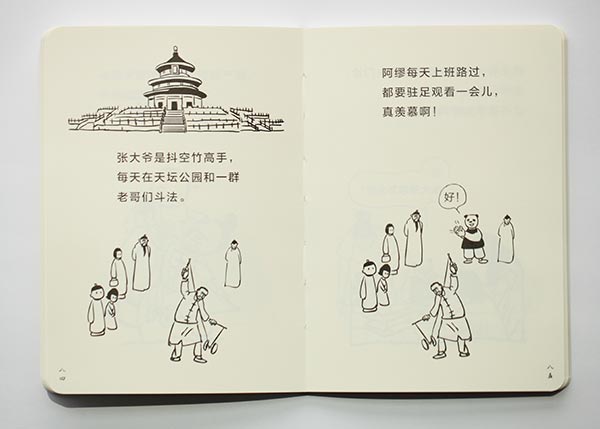 张大爷是抖空竹高手，
每天在天坛公园和一群
老哥们斗法。
八四
阿缪每天上班路过，
都要驻足观看一会儿，
真羡慕啊！
好！
八五